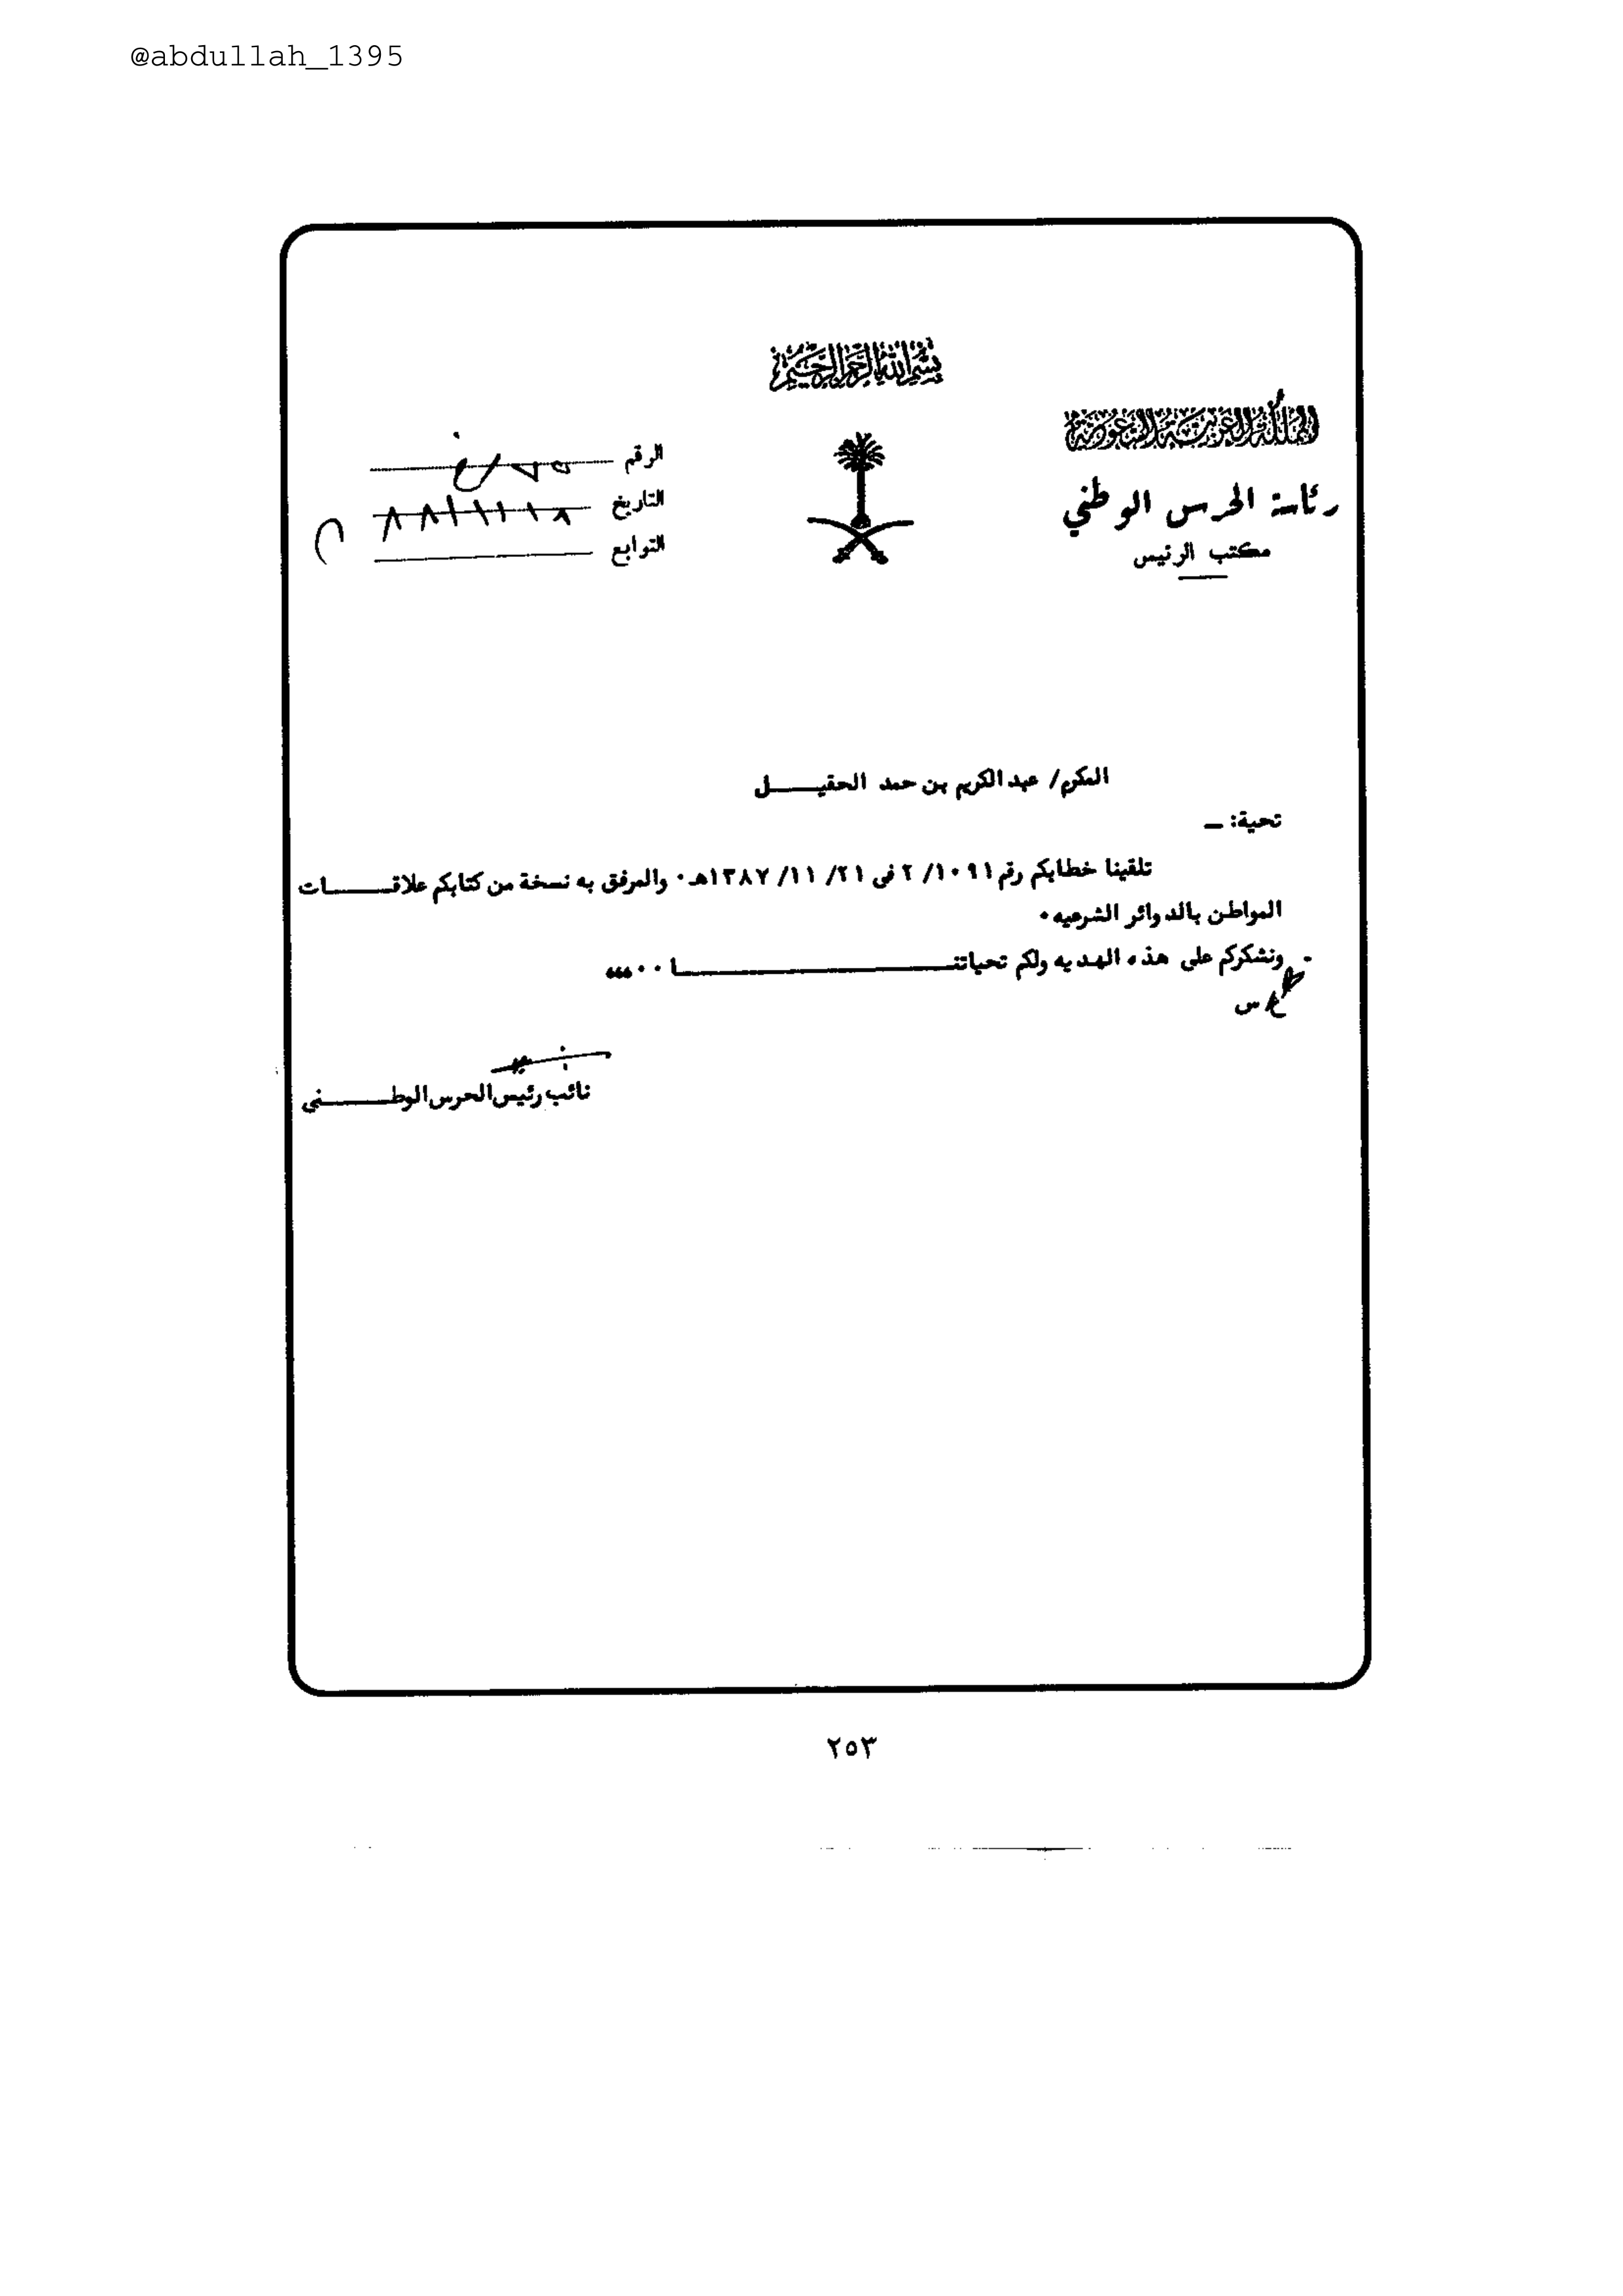 @abdullah_1395
بسم الله الرحمن الرحيم
المملكة العربية السعودية
رئاسة الحرس الوطني
مكتب الرئيس
الرقم
التاريخ
التوابع
المكرم/ عبد الكريم بن حمد الحقيـــــل
تحية: ــ
تلقينا خطابكم رقم ١٠٩١/ ٢ فى ٢١/ ١١/ ١٣٨٧هـ٠ والمرفق به نسخة من كتابكم علاقـــــــات
المواطن بالدوائر الشرعيه٠
ونشكركم على هذه الهديه ولكم تحياتنــــــــــــــــــــــــا ٠٠،،،
نائب رئيس الحرس الوطـــــــنى
٢٥٣